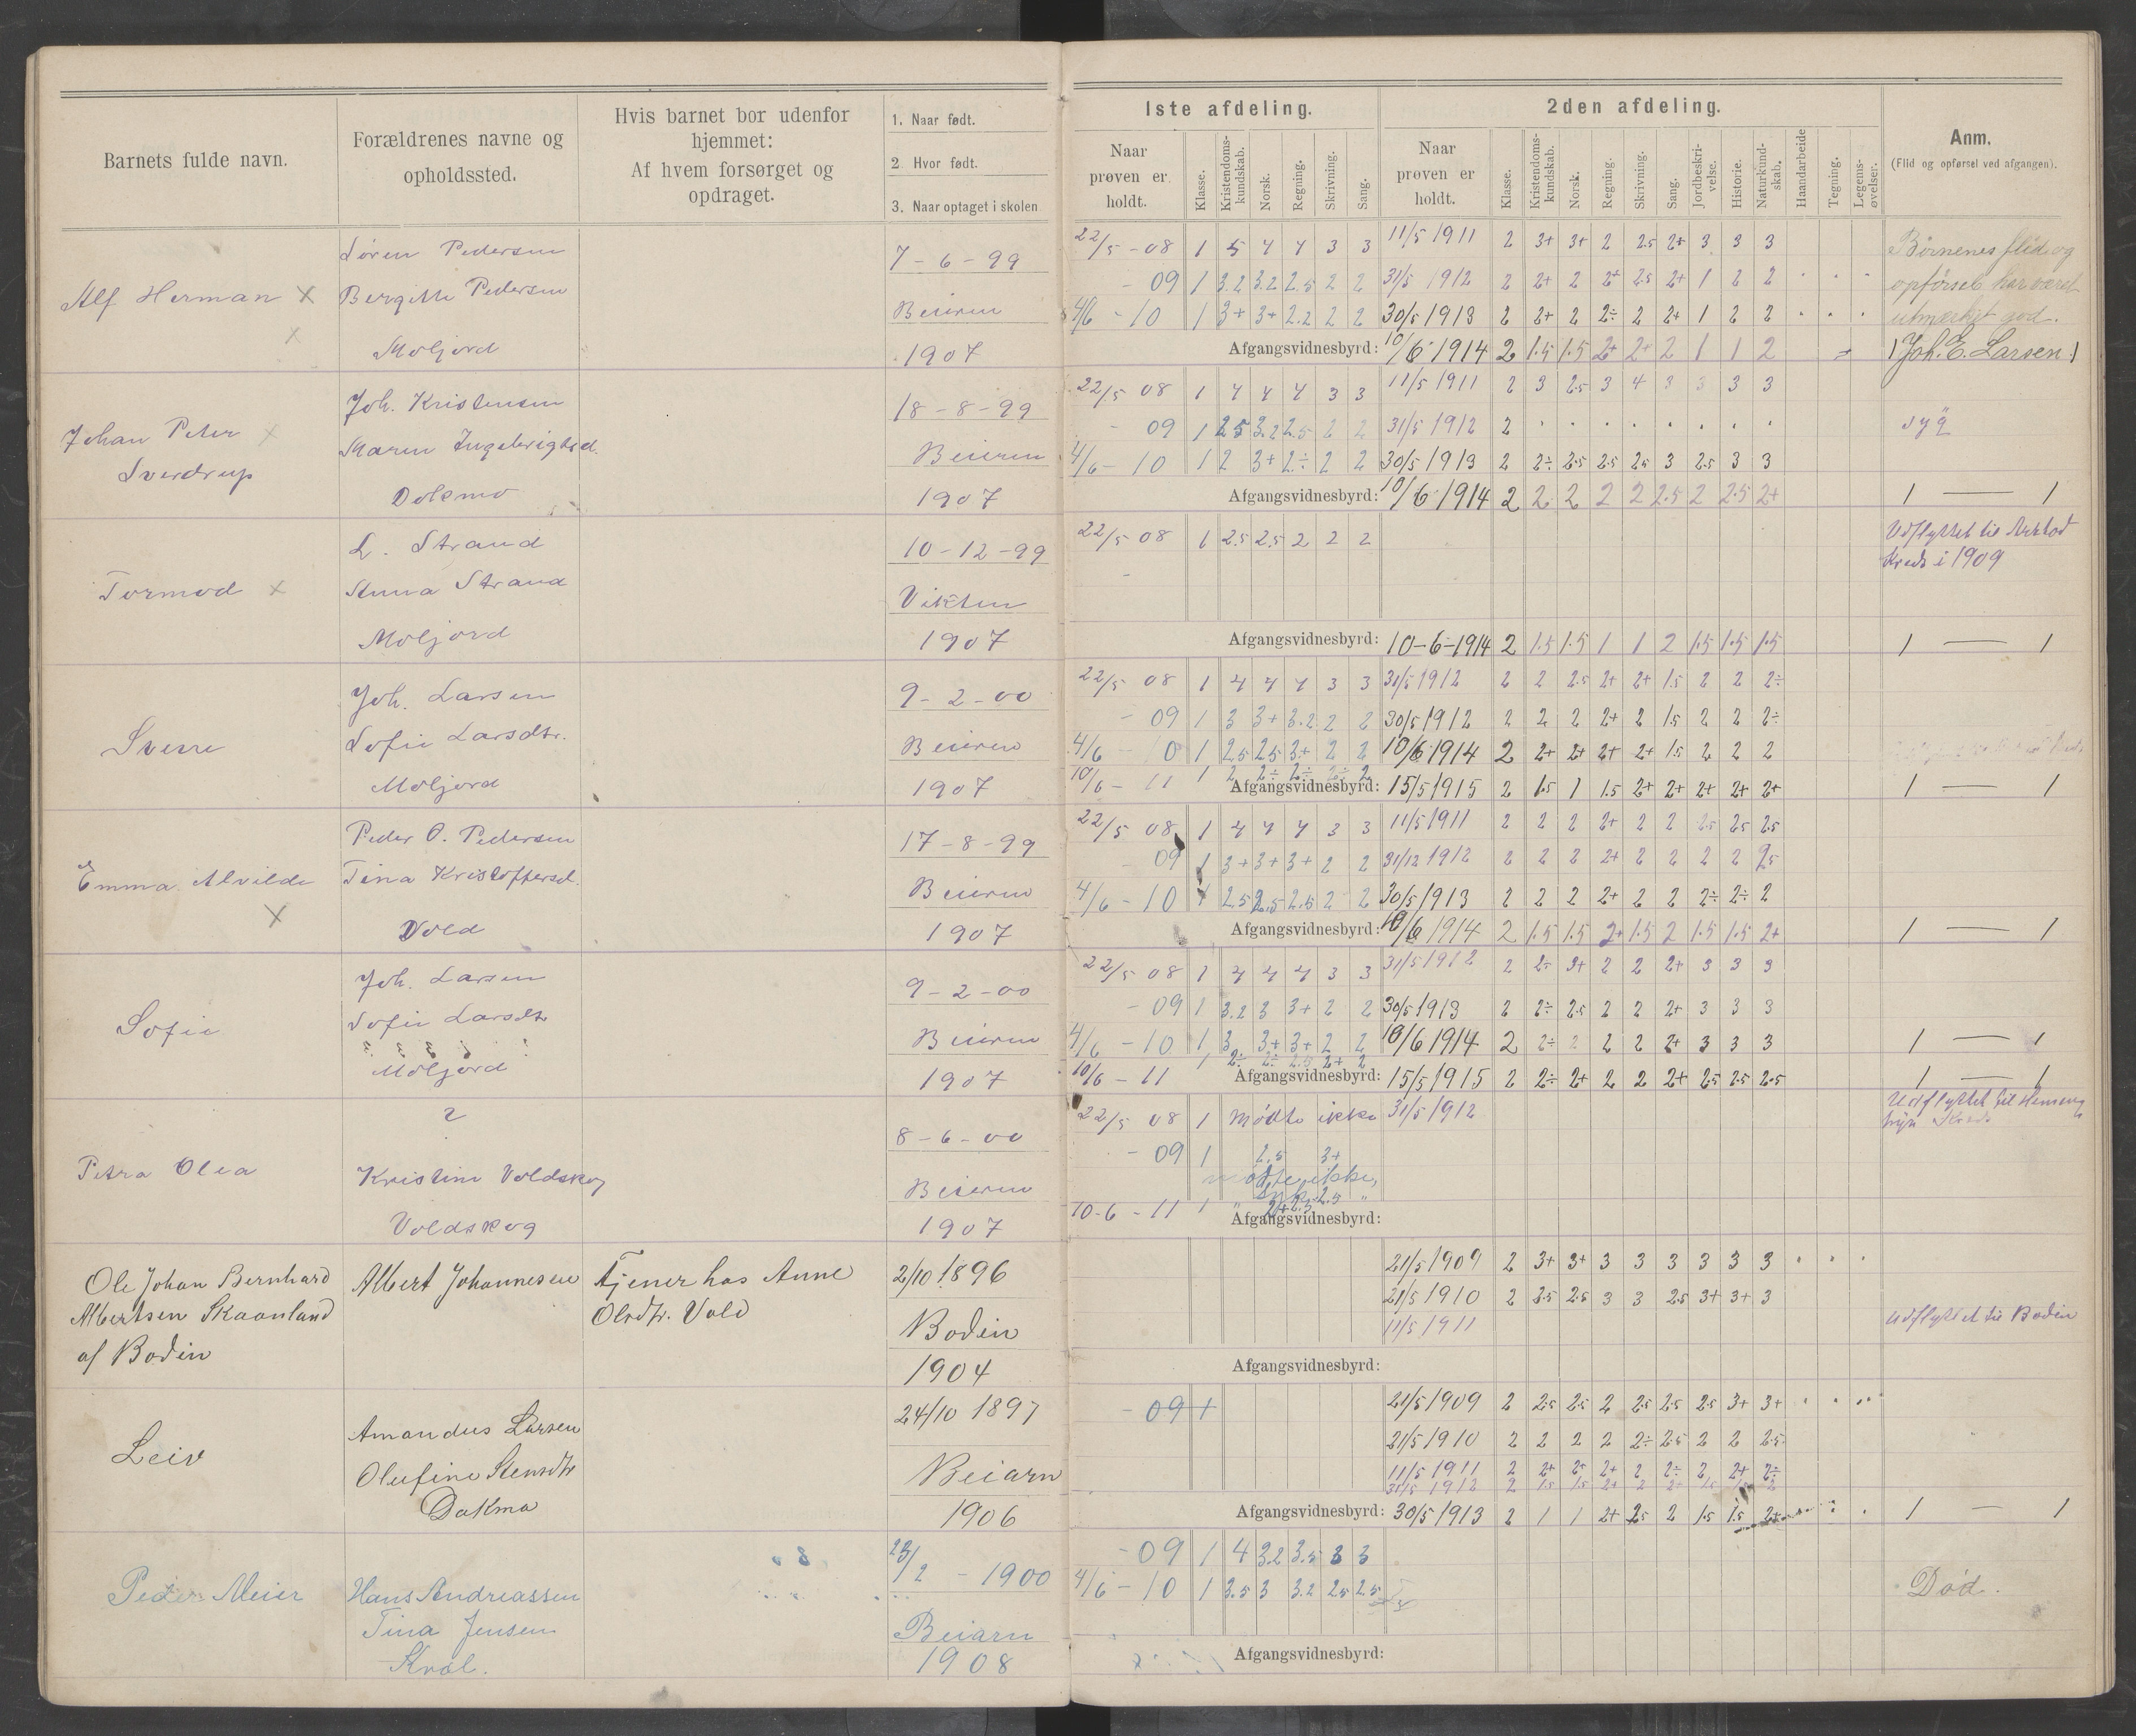 Barnets fulde navn.
Forældrenes navne og
opholdssted.
Hvis barnet bor udenfor
hjemmet:
Af hvem forsørget og
opdraget.
1. Naar født.
2 Hvor født.
3. Naar optaget i skolen
1ste afdeling.
Naar
prøven er
holdt.
Klasse.
Kristendoms-
kundskab.
Norsk.
Regning.
Skrivning.
Sang.
2den afdeling.
Naar
prøven er
holdt.
Klasse.
Kristendoms-
kundskab.
Norsk.
Regning.
Skrivning.
Sang.
Jordbeskri-
velse.
Historie.
Naturkund-
skab.
Haandarbeide
Tegning.
Legems-
øvelser.
Anm.
(Flid og opførsel ved afgangen).
Alf Herman
Søren Pedersen
Bergitte Pedersen
Moljord
7-6-99
Beieren
1907
22/5-08 1 5 4 4 3 3
11/5 1911 2 3+ 3+ 2 2.5 2+ 3 3 3
- 09 1 3.2 3.2 2.5 2 2
31/5 1912 2 2+ 2 2+ 2.5 2+ 1 2 2
4/6 - 10 1 3+ 3+ 2.2 2 2
30/5 1913 2 2+ 2 2÷ 2 2+ 1 2 2
Afgangsvidnesbyrd: 10/6 1914 2 1.5 1.5 2+ 2+ 2 1 1 2
Børnenes flid og
opførsel har været
utmærket god.
(Joh. E. Larsen.)
Johan Peter
Sverdrup
Joh. Kristensen
Maren Ingebrigtsd.
Dokmo
18-8-99
Beieren
1907
22/5 08 1 4 4 4 3 3
11/5 1911 2 3 2.5 3 4 3 3 3 3
- 09 1 2.5 3.2 2.5 2 2
31/5 1912 2
syg
4/6 - 10 1 2 3+ 2÷ 2 2
30/5 1913 2 2÷ 2.5 2.5 2.5 3 2.5 3 3
Afgangsvidnesbyrd: 10/6 1914 2 2 2 2 2 2.5 2 2.5 2+
Tormod
L. Strand
Anna Strand
Moljord
10-12-99
Vikten
1907
22/5 08 1 2.5 2.5 2 2 2
Udflyttet til
Kreds i 1909
Afgangsvidnesbyrd: 10-6-1914 2 1.5 1.5 1 1 2 1.5 1.5 1.5
Sverre
Joh. Larsen
Sofie Larsdtr.
Moljord
9-2-00
Beieren
1907
22/5 08 1 4 4 4 3 3
31/5 1912 2 2 2.5 2+ 2+ 1.5 2 2 2÷
- 09 1 3 3+ 3.2 2 2
30/5 1912 2 2 2 2+ 2 1.5 2 2 2÷
4/6 - 10 1 2.5 2.5 3+ 2 2
10/6 1914 2 2+ 2+ 2+ 2+ 1.5 2 2 2
10/6 - 11 1 2 2÷ 2÷ 2÷ 2
Afgangsvidnesbyrd: 15/5 1915 2 1.5 1 1.5 2+ 2+ 2+ 2+ 2+
Emma Alvilde
Peder O. Pedersen
Tina Kristoffersd.
Vold
17-8-99
Beieren
1907
22/5 08 1 4 4 4 3 3
11/5 1911 2 2 2 2+ 2 2 2.5 2.5 2.5
- 09 1 3+ 3+ 3+ 2 2
31/12 1912 2 2 2 2+ 2 2 2 2 2.5
4/6 - 10 1 2.5 2.5 2.5 2 2
30/5 1913 2 2 2 2+ 2 2 2÷ 2÷ 2
Afgangsvidnesbyrd: 10/6 1914 2 1.5 1.5 2+ 1.5 2 1.5 1.5 2+
Sofie
Joh. Larsen
Sofie Larsdtr
Moljord
9-2-00
Beieren
1907
22/5 08 1 4 4 4 3 3
31/5 1912 2 2÷ 3+ 2 2 2+ 3 3 3
- 09 1 3.2 3 3+ 2 2
30/5 1913 2 2÷ 2.5 2 2 2+ 3 3 3
4/6 - 10 1 3 3+ 3+ 2 2
10/6 1914 2 2÷ 2 2 2 2+ 3 3 3
10/6 - 11 1 2÷ 2÷ 2.5 2+ 2
Afgangsvidnesbyrd: 15/5 1915 2 2÷ 2+ 2 2 2+ 2.5 2.5 2.5
Petra Olea
?
Kristine Voldskog
Voldskog
8-6-00
Beieren
1907
22/5 08 1 Mødte ikke
31/5 1912
Udflyttet til
Kreds
- 09 1 2.5 3+
mødte ikke,
10-6-11 1
Afgangsvidnesbyrd:
Ole Johan Bernhard
Albertsen Skaanland
af Bodin
Albert Johannesen
Tjener hos Anne
Olsdtr. Vold
2/10 1896
Bodin
1904
21/5 1909 2 3+ 3+ 3 3 3 3 3 3
21/5 1910 2 2.5 2.5 3 3 2.5 3+ 3+ 3
11/5 1911
Udflyttet til Bodin
Afgangsvidnesbyrd:
Leiv
Amandus Larsen
Olufine Stensdtr
Dokmo
24/10 1897
Beiarn
1906
- 09 +
21/5 1909 2 2.5 2.5 2 2.5 2.5 2.5 3+ 3+
21/5 1910 2 2 2 2 2÷ 2.5 2 2 2.5
11/5 1911 2 2+ 2+ 2+ 2 2÷ 2 2+ 2÷
31/5 1912 2 1.5 1.5 2+ 2 2+ 1.5 1.5 2
Afgangsvidnesbyrd: 30/5 1913 2 1 1 2+ 2.5 2 1.5 1.5 2+
Peder Meier
Hans Andreassen
Tina Jensen
Kvæl.
23/2 - 1900
Beiarn
1908
- 09 1 4 3.2 3.5 3 3
4/6 - 10 1 3.5 3 3.2 2.5 2.5
Død.
Afgangsvidnesbyrd: